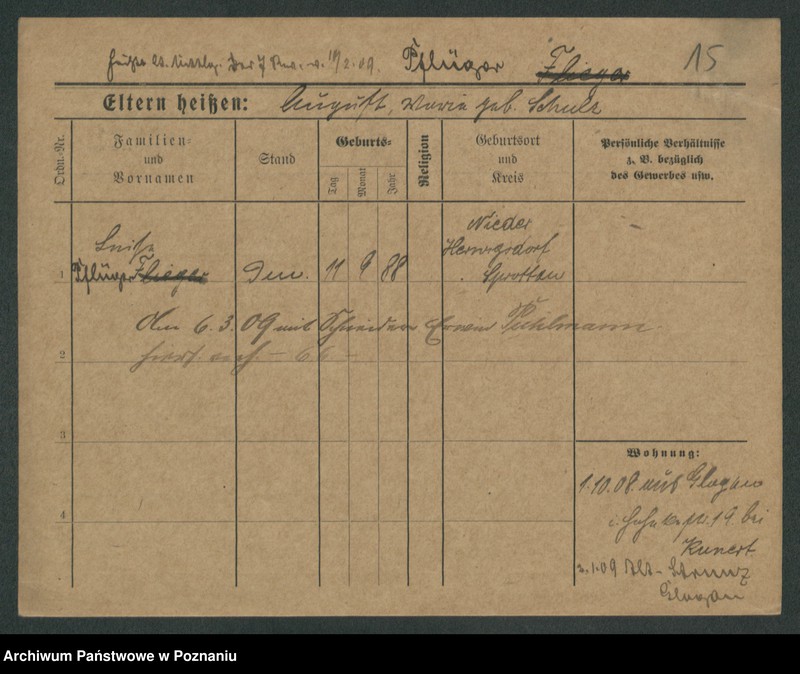 Pflüger Flieger 15
Eltern heißen: August, Marie geb. Schulz
Ordn.-Nr.
Familien-
und
Vornamen
Stand
Geburts-
Tag
Monat
Jahr
Religion
Geburtsort
und
Kreis
Persönliche Verhältnisse
z. B. bezüglich
des Gewerbes usw.
1
Luise
Pflüger Flieger
11 9 88
Nieder
Herwigsdorf
Sprottau
Am 6.3.09 mit Schneider Erwin Puhlmann
2
3
4
Wohnung:
1.10.08. aus Glogau
19 bei
Kunert
Glogau
Archiwum Państwowe w Poznaniu